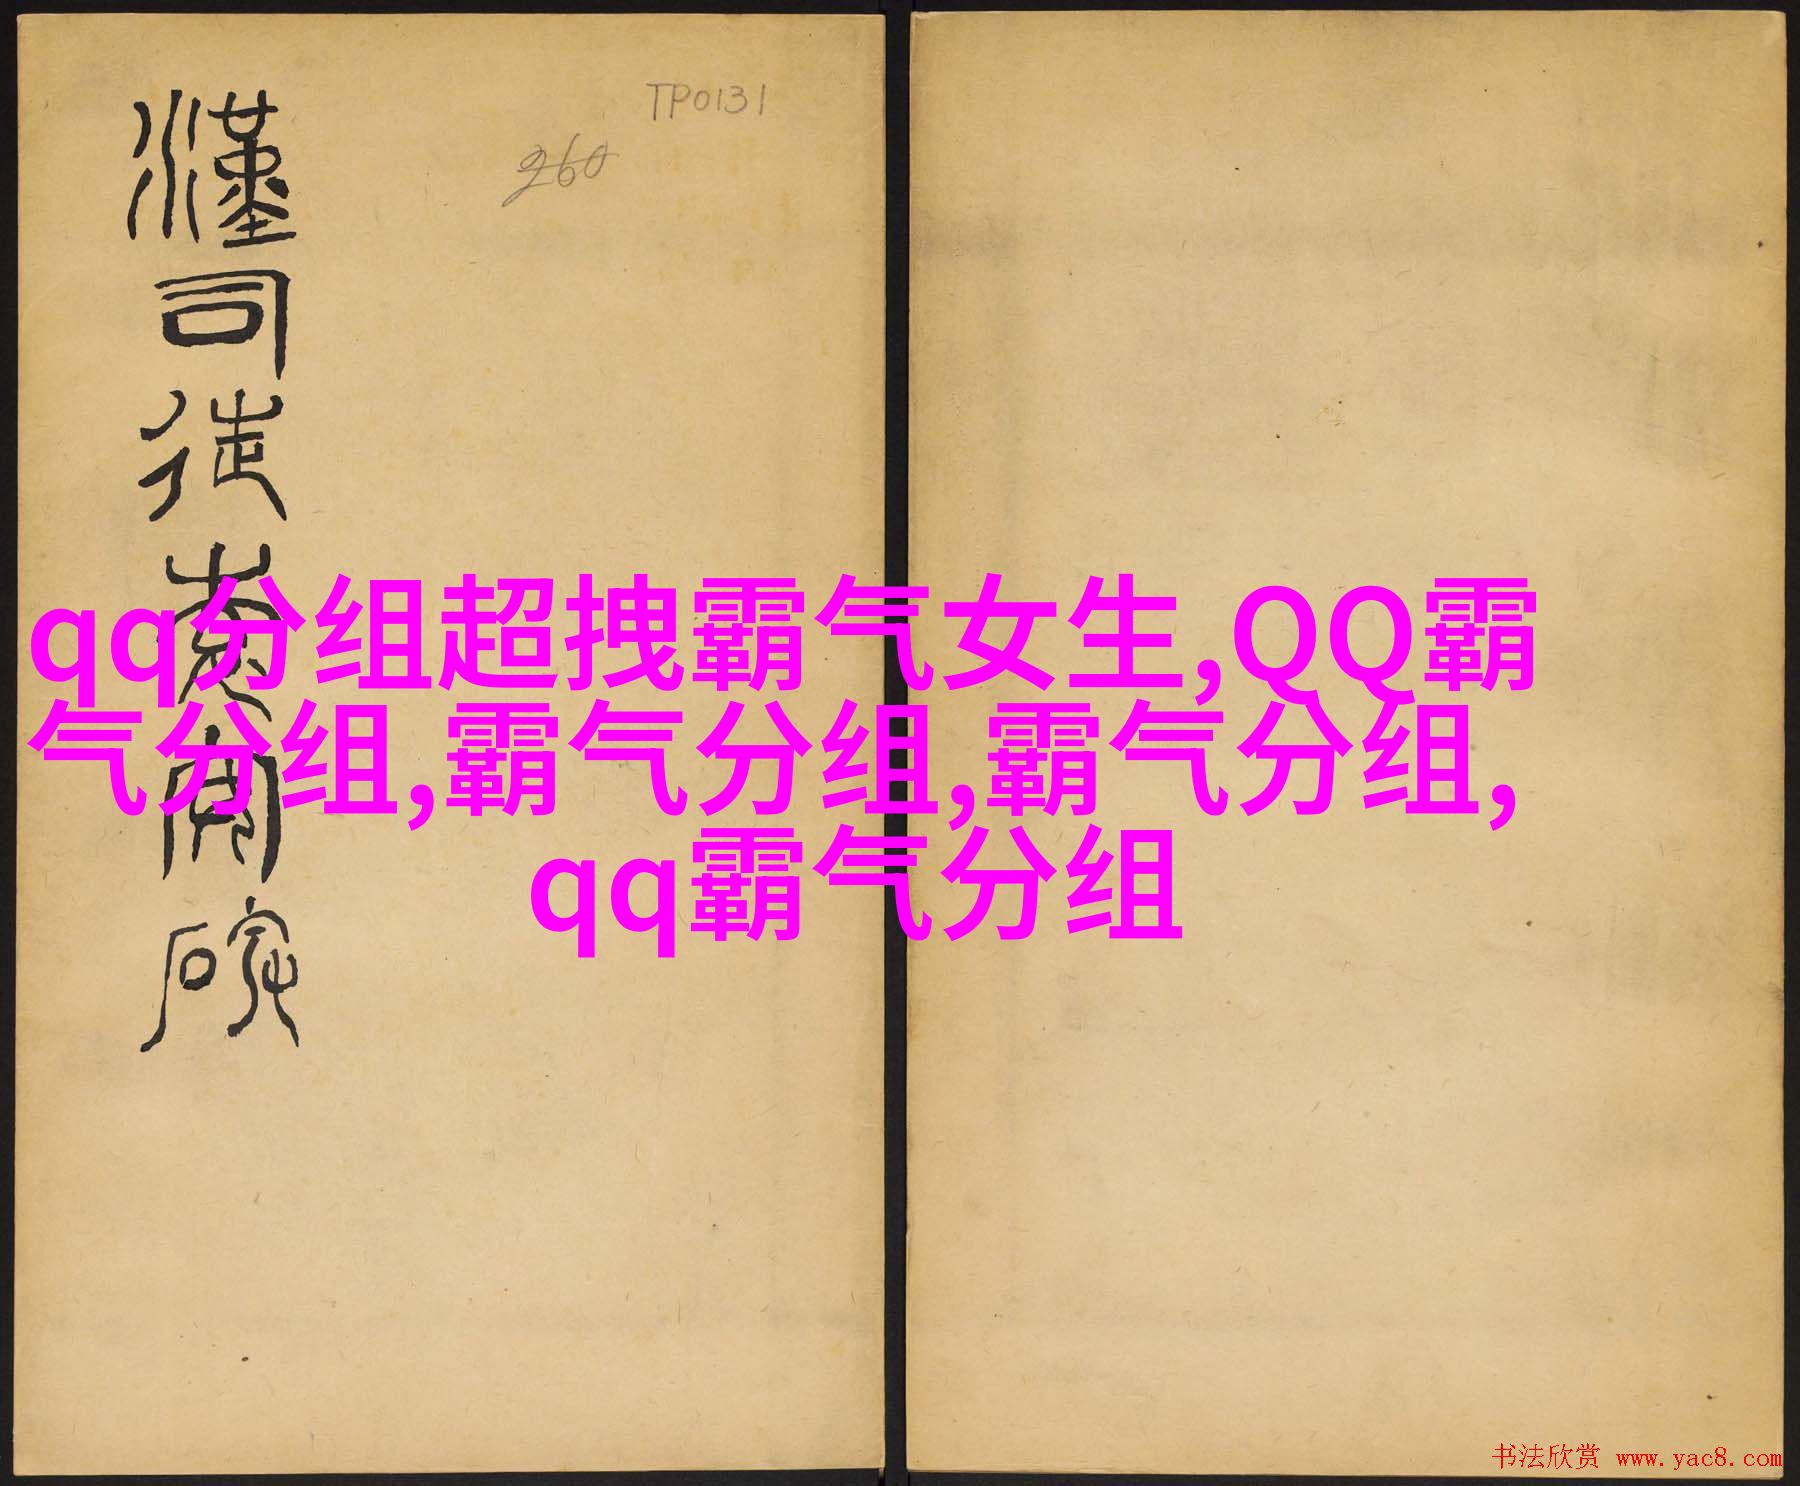 TP0131
260
漢司徒袁安碑
qq分组超拽霸气女生,QQ霸
气分组,霸气分组,霸气分组,
qq霸气分组
书法欣赏 www.yac8.com